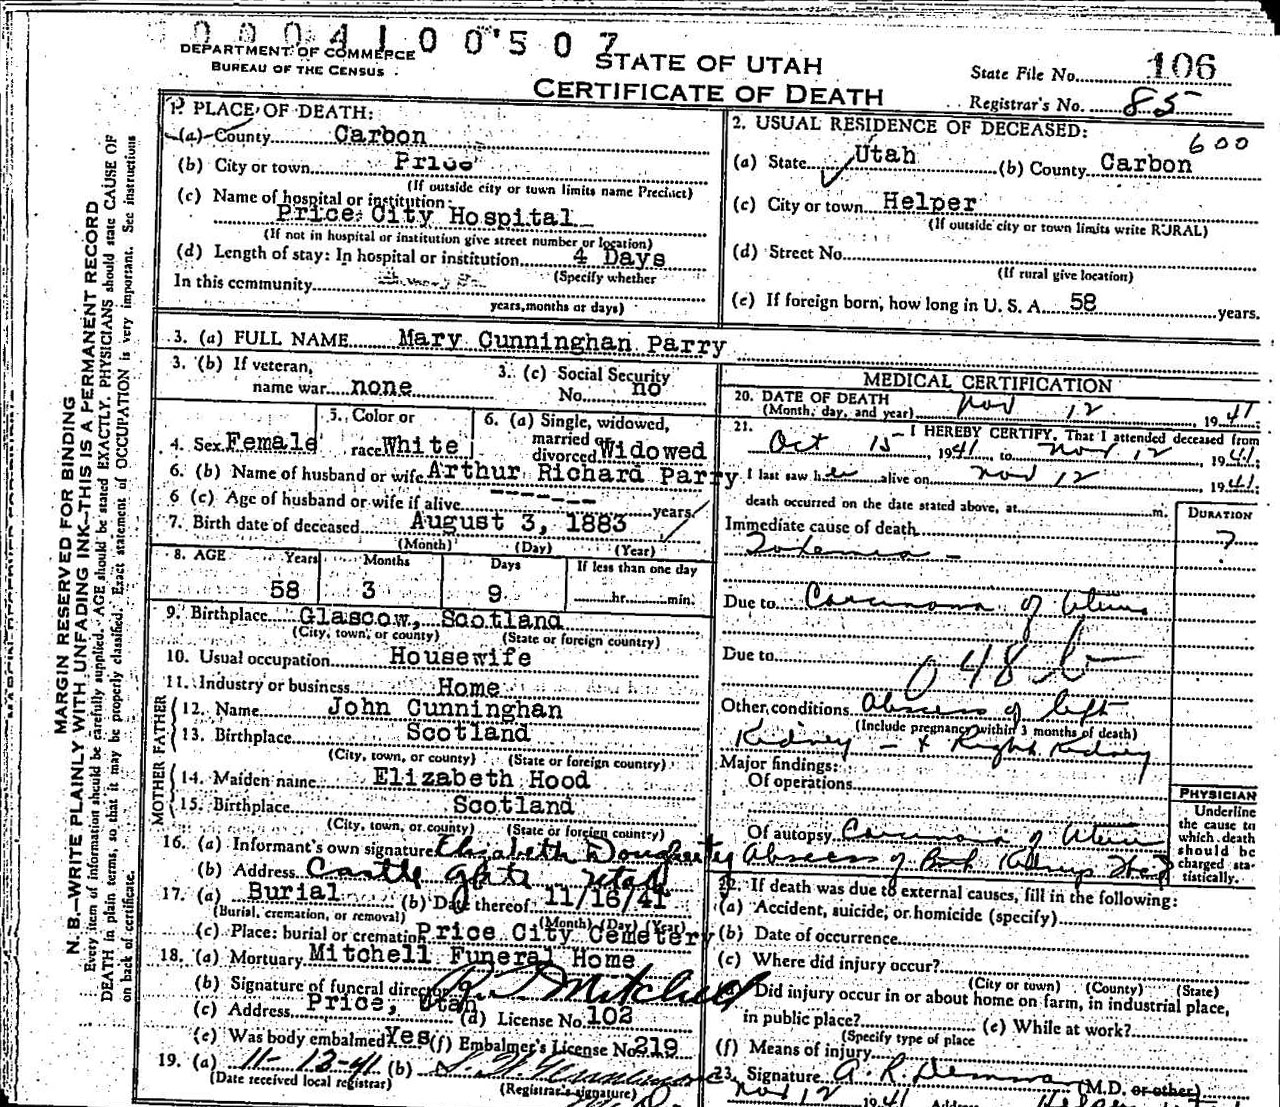 00041 00507
DEPARTMENT OF COMMERCE
BUREAU OF THE CENSUS
STATE OF UTAH
CERTIFICATE OF DEATH
State File No. 106
Registrar's No. 85
MARGIN RESERVED FOR BINDING
N. B.—WRITE PLAINLY WITH UNFADING INK—THIS IS A PERMANENT RECORD
Every item of information should be carefully supplied. AGE should be stated EXACTLY. PHYSICIANS should state CAUSE OF
DEATH in plain terms, so that it may be properly classified. Exact statement of OCCUPATION is very important. See instructions
on back of certificate.
1. PLACE OF DEATH:
(a) County Carbon
(b) City or town Price
(If outside city or town limits name Precinct)
(c) Name of hospital or institution:
Price City Hospital
(If not in hospital or institution give street number or location)
(d) Length of stay: In hospital or institution 4 Days
(Specify whether
In this community
years, months or days)
2. USUAL RESIDENCE OF DECEASED:
600
(a) State Utah (b) County Carbon
(c) City or town Helper
(If outside city or town limits write RURAL)
(d) Street No.
(If rural give location)
(e) If foreign born, how long in U. S. A. 58 years.
3. (a) FULL NAME Mary Cunninghan Parry
3. (b) If veteran,
name war none
3. (c) Social Security
No. no
4. Sex Female
5. Color or
race White
6. (a) Single, widowed,
married or
divorced Widowed
6. (b) Name of husband or wife Arthur Richard Parry
6 (c) Age of husband or wife if alive ------- years.
7. Birth date of deceased August 3, 1883
(Month) (Day) (Year)
8. AGE Years Months Days If less than one day
58 3 9 hr. min.
9. Birthplace Glascow, Scotland
(City, town, or county) (State or foreign country)
10. Usual occupation Housewife
11. Industry or business Home
FATHER
12. Name John Cunninghan
13. Birthplace Scotland
(City, town, or county) (State or foreign country)
MOTHER
14. Maiden name Elizabeth Hood
15. Birthplace Scotland
(City, town, or county) (State or foreign country)
16. (a) Informant's own signature Elizabeth Dougherty
(b) Address Castle Gate Utah
17. (a) Burial (b) Date thereof 11/16/41
(Burial, cremation, or removal) (Month) (Day) (Year)
(c) Place: burial or cremation Price City Cemetery
18. (a) Mortuary Mitchell Funeral Home
(b) Signature of funeral director Mitchell
(c) Address Price, Utah (d) License No. 102
(e) Was body embalmed Yes (f) Embalmer's License No. 219
19. (a) 11-13-41 (b)
(Date received local registrar) (Registrar's signature)
MEDICAL CERTIFICATION
20. DATE OF DEATH
(Month, day, and year) Nov 12 1941
21. I HEREBY CERTIFY, That I attended deceased from
Oct 15, 1941 to Nov 12, 1941;
I last saw her alive on Nov 12, 1941;
death occurred on the date stated above, at m.
DURATION
Immediate cause of death
?
Due to Carcinoma of Uterus
Due to
048 b
Other conditions Abscess of left
(Include pregnancy within 3 months of death)
Kidney - + Right Kidney
Major findings:
Of operations
Of autopsy Carcinoma of Uterus
Abscess of Both Kidneys
PHYSICIAN
Underline
the cause to
which death
should be
charged sta-
tistically.
22. If death was due to external causes, fill in the following:
(a) Accident, suicide, or homicide (specify)
(b) Date of occurrence
(c) Where did injury occur?
(City or town) (County) (State)
Did injury occur in or about home on farm, in industrial place,
in public place? (e) While at work?
(Specify type of place
(f) Means of injury
23. Signature (M.D. or other)
Nov 12 1941 Address